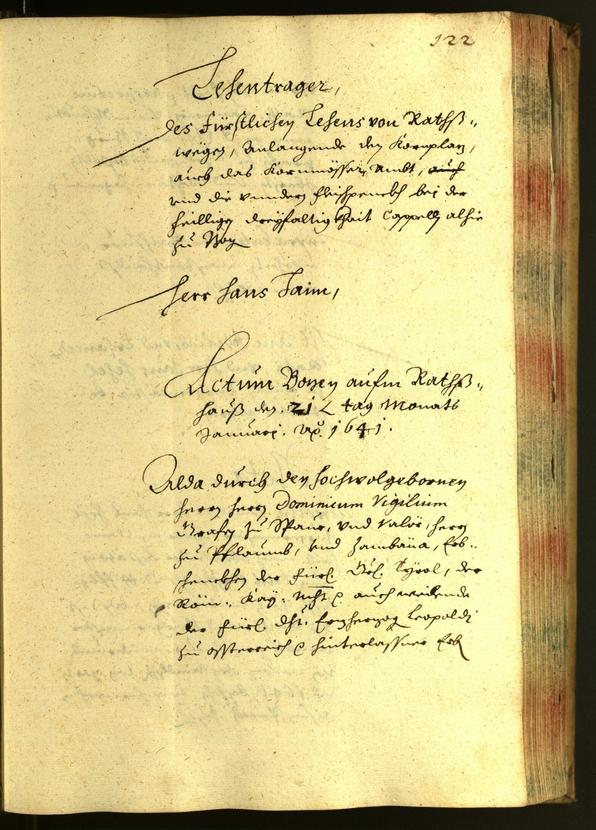 122
Lehentrager,
des Fürstlichen Lehens von Raths-
wegen, Anlangende den Kornplaz,
auch das Kornmösser Ambt, auch
und die undern Fleischpenckh bei der
heilligen dreyfaltigkhait Cappelln alhie
zu Bozn
Herr Hans Jaim,
Actum Bozen aufm Raths-
hauß den 21 tag Monats
Januarj. Ao. 1641.
Alda durch den Hochwolgebornen
herrn herrn Dominicum Vigilium
Grafen zu Spaur, und Valör, herrn
zu Pflaumb, und Zambana, Erb-
schenckhen der Fürstl. Tyrol, der
Röm. Kay. Mt. auch weilende
der Fürl. Dht. Erzherzog Leopoldj
zu Össterreich hinterlassner Erb